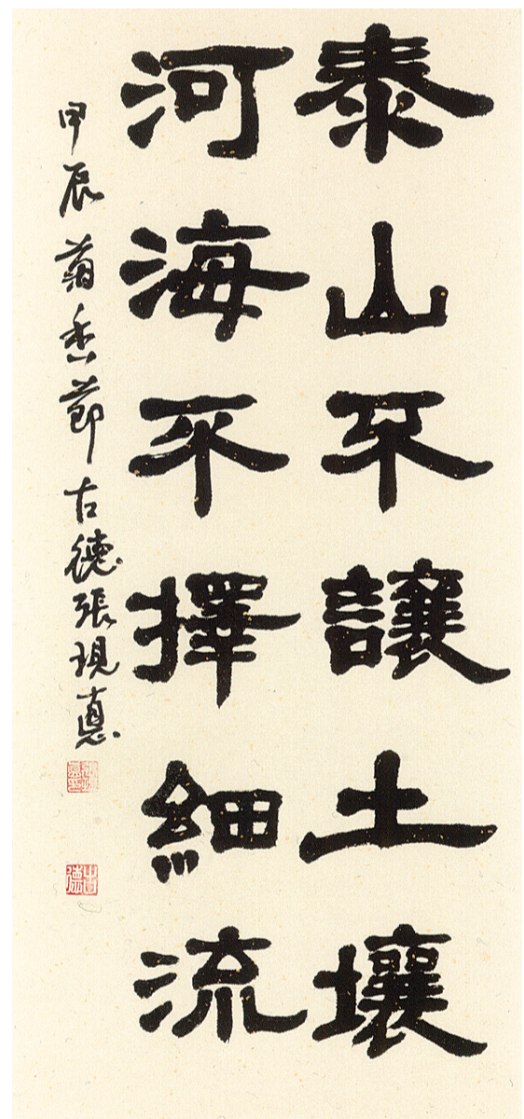 泰山不讓土壤
河海不擇細流
甲辰菊香節古德張現悳
古德